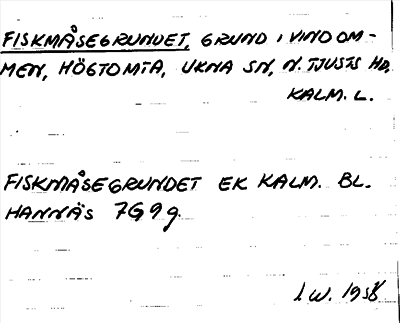 FISKMÅSEGRUNDET, GRUND I VINDOM-
MEN, HÖGTOMTA, UKNA SN, N. TJUSTS HD,
KALM. L.
FISKMÅSEGRUNDET EK KALM. BL.
HANNÄS 7G9g.
I.W. 1958